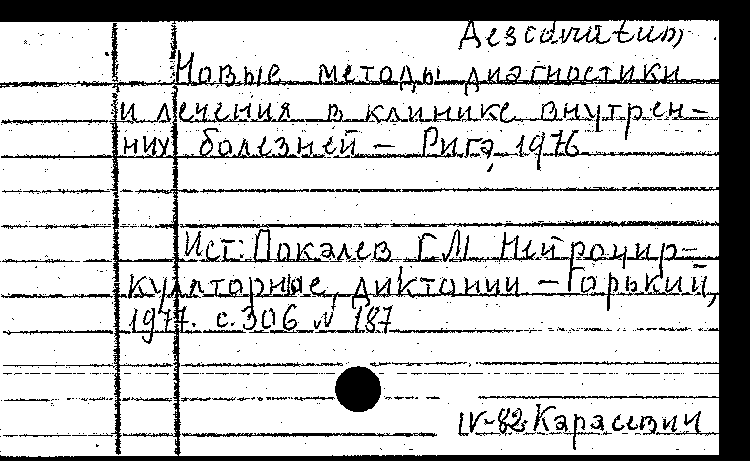 Desideratum
Новые методы диагностики
и лечения в клинике внутрен-
них болезней – Рига, 1976
Ист: Покалев Г.М. Нейроцир-
куляторные диктонии – Горький,
1977. с. 306 № 187
IV-82 Карасевич